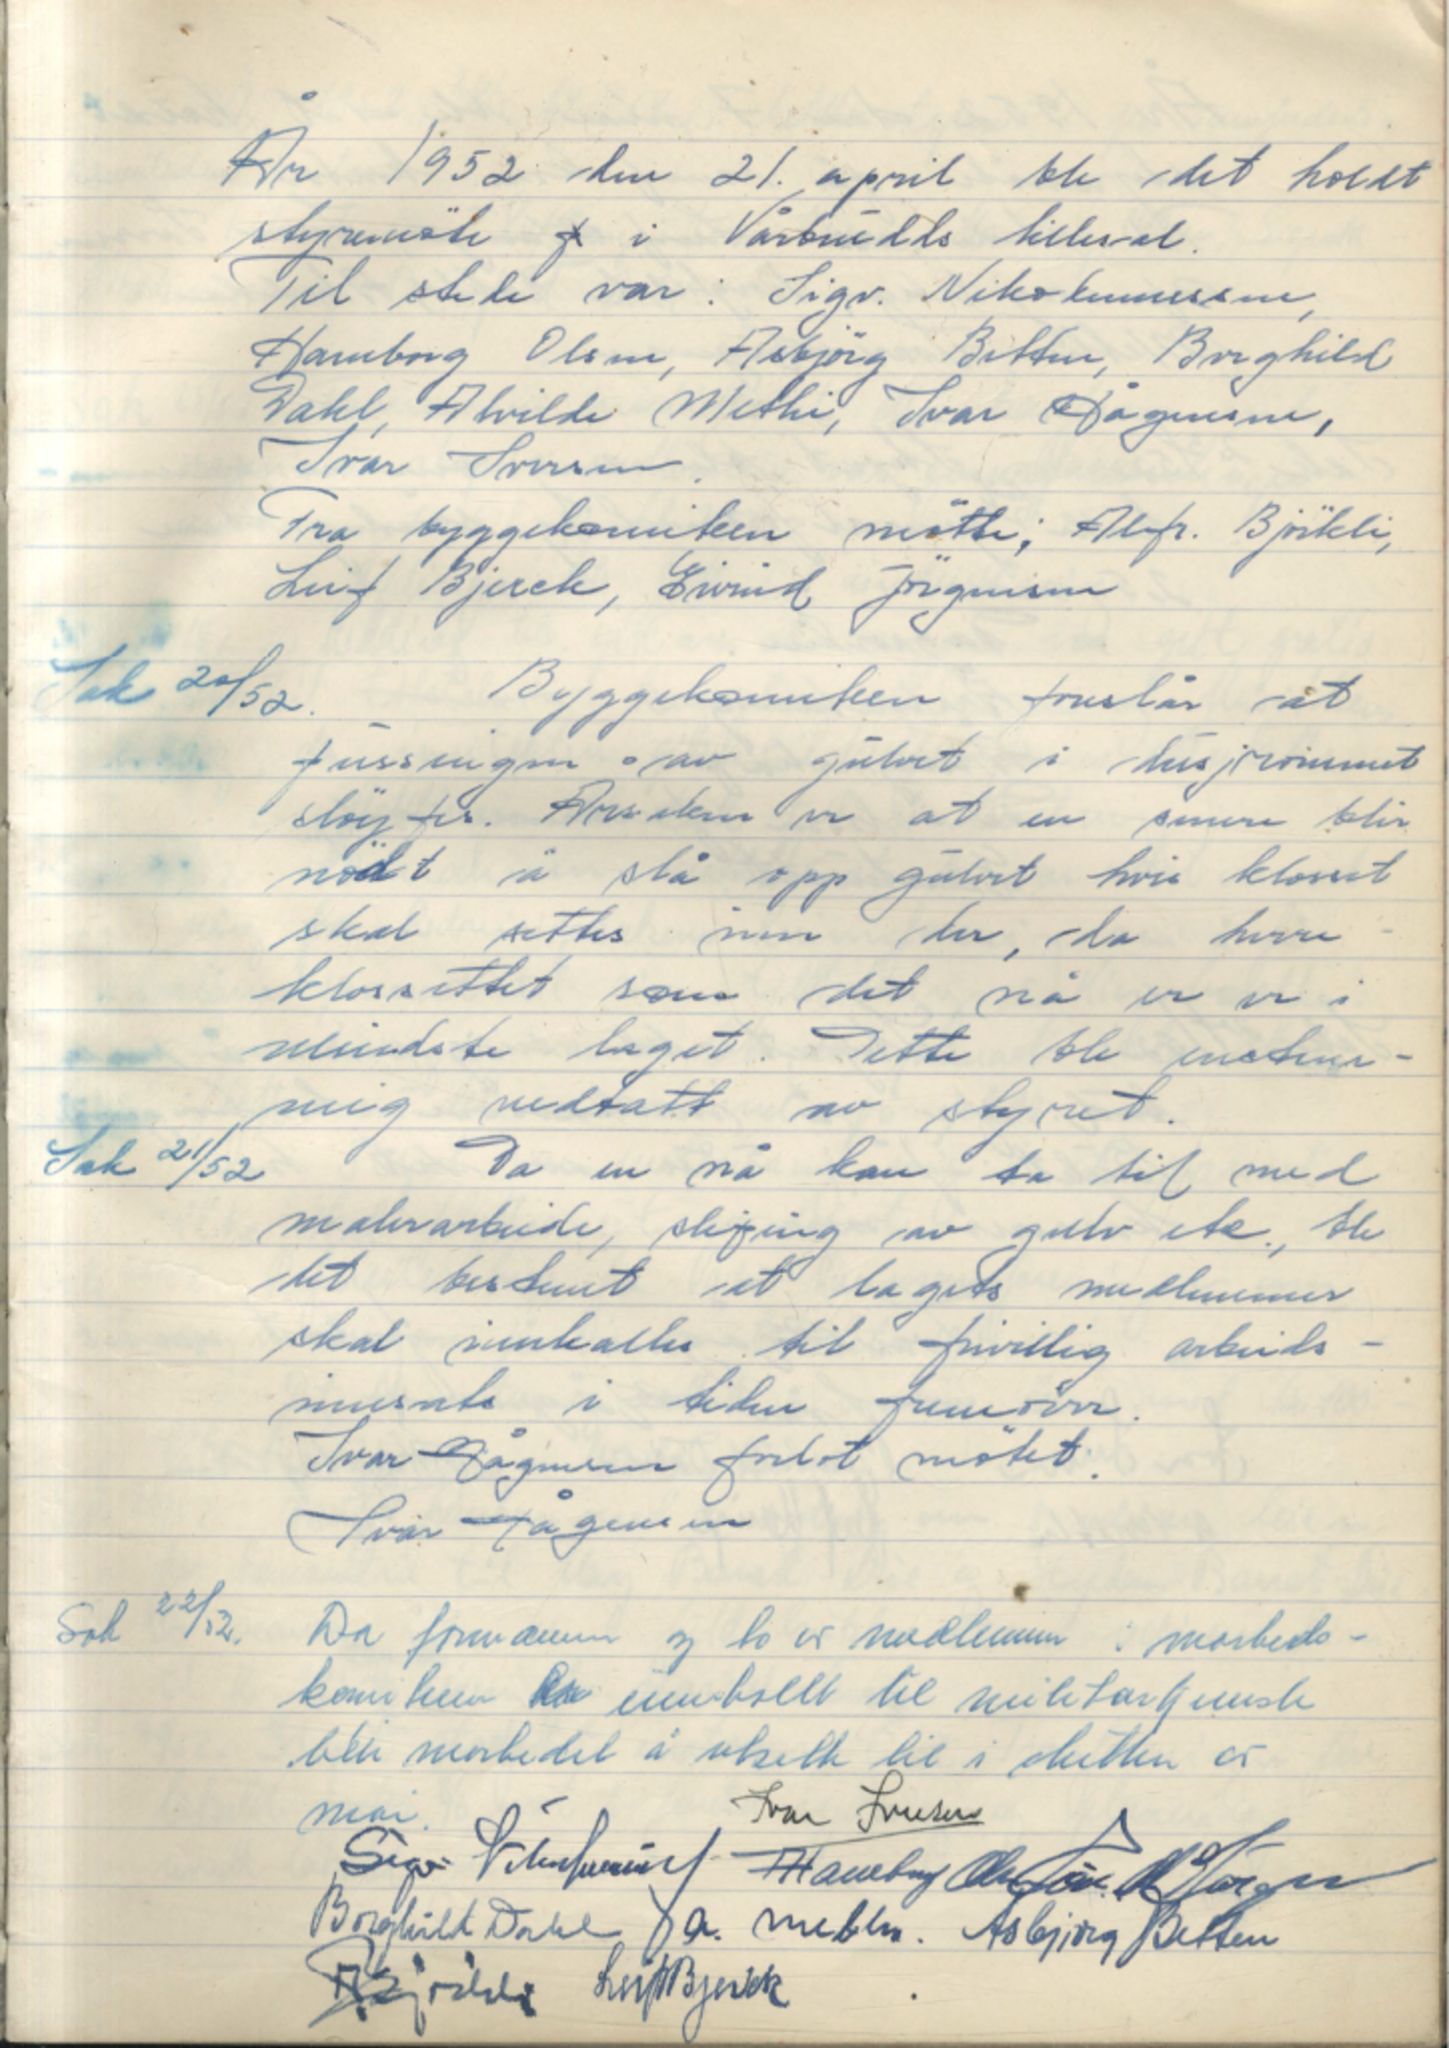 År 1952 den 21. april ble det holdt
styremöte i Vårbrudds lillesal.
Til stede var: Sigv. Nikolaissen,
Hamborg Olsen, Asbjörg Betten, Borghild
Dahl, Alvilde Methi, Ivar Hågensen,
Ivar Iversen.
Fra byggekomiteen mötte; Alfr. Björkli,
Leif Bjerck, Eivind Jörgensen
Sak 20/52. Byggekomiteen foreslår at
pussingen av gulvet i dusjrommet
slöyfes. Årsaken er at en senere blir
nödt å slå opp gulvet hvis klosset
skal settes inn der, da herre-
klossettet som det nå er er i
mindste laget. Dette ble enstem-
mig vedtatt av styret.
Sak 21/52 Da en nå kan ta til med
malerarbeide, sliping av gulv etc., ble
det bestemt at lagets medlemmer
skal innkalles til frivillig arbeids-
innsats i tiden fremover.
Ivar Hågensen forlot mötet.
Ivar Hågensen
Sak 22/52. Da formannen og to av medlemmene i markeds-
komiteen innkallt til militærtjeneste
blir markedet å utsette til i slutten av
mai. Ivar Iversen
Sigv. Hamborg Olsen
Borghild Dahl A. Methi. Asbjörg Betten
A Björkli Leif Bjerck